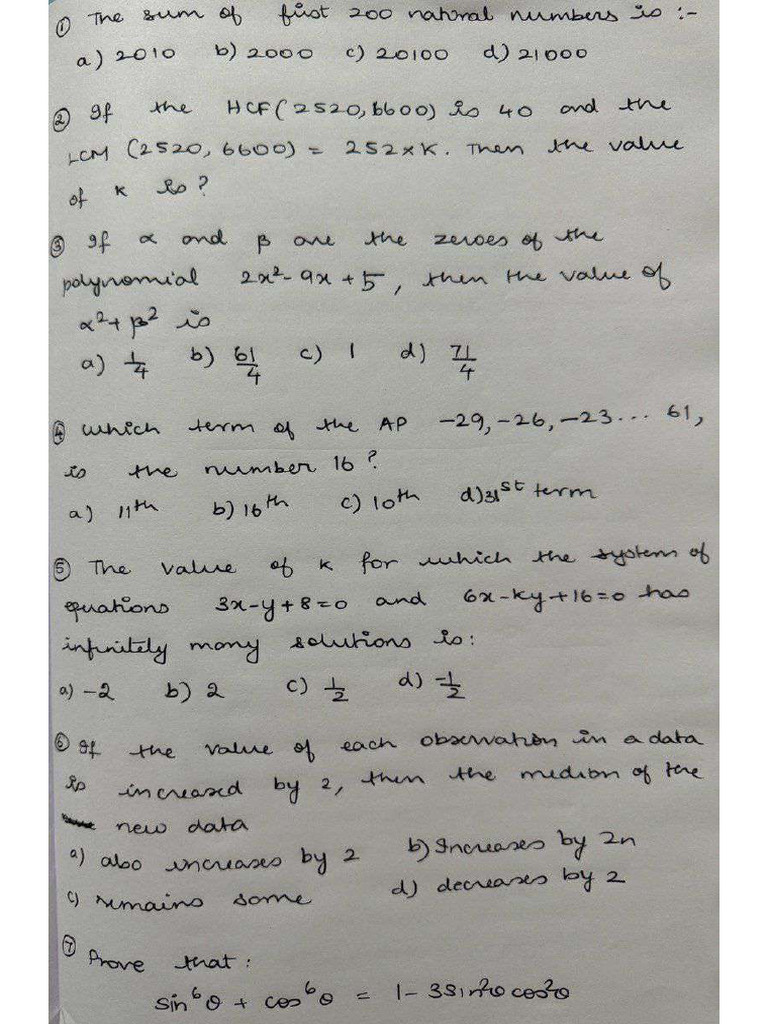 ① The sum of first 200 natural numbers is :-
a) 2010 b) 2000 c) 20100 d) 21000
② If the HCF(2520,6600) is 40 and the
LCM (2520, 6600) = 252×K. Then the value
of K is?
③ If α and β are the zeroes of the
polynomial 2x²-9x+5, then the value of
α²+β² is
a) 1/4 b) 61/4 c) 1 d) 71/4
④ which term of the AP -29,-26,-23... 61,
is the number 16?
a) 11th b) 16th c) 10th d) 31st term
⑤ The value of K for which the system of
equations 3x-y+8=0 and 6x-Ky+16=0 has
infinitely many solutions is:
a) -2 b) 2 c) 1/2 d) -1/2
⑥ If the value of each observation in a data
is increased by 2, then the median of the
new data
a) also increases by 2 b) Increases by 2n
c) remains same d) decreases by 2
⑦ Prove that:
sin⁶θ + cos⁶θ = 1-3sin²θcos²θ